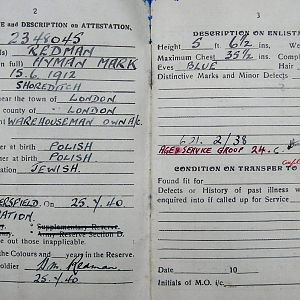 2
E and DESCRIPTION on ATTESTATION.
2348045
REDMAN
in full) HYMAN MARK
15.6.1912
SHOREDITCH
near the town of LONDON
county of LONDON
WAREHOUSEMAN OWN A/C.
er at birth POLISH
er at birth POLISH
JEWISH.
ERSFIELD. On 25.7.40
RATION.
Supplementary Reserve.
Army Reserve Section D.
e out those inapplicable.
the Colours and years in the Reserve.
oldier H.M. Redman
25.7.40
3
DESCRIPTION ON ENLIST
Height 5 ft. 6½ ins.
Maximum Chest 35½ ins. Compl
Eyes BLUE Hair
Distinctive Marks and Minor Defects
2/38
AGE & SERVICE GROUP 24.
CONDITION ON TRANSFER TO
Found fit for
Defects or History of past illness w
enquired into if called up for Service
Date 19
Initials of M.O. i/c.